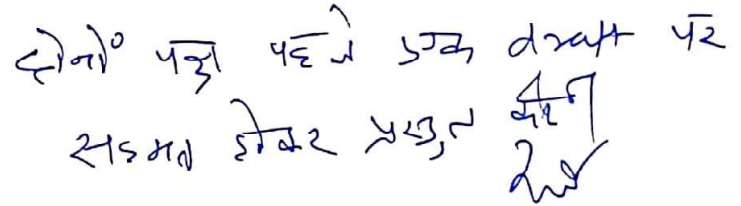 दोनों पक्ष पहले एक draft पर
सहमत होकर प्रस्तुत करें